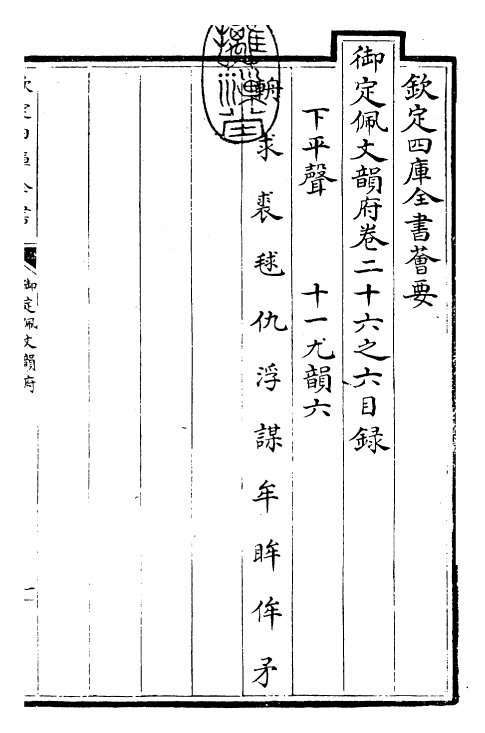 欽定四庫全書薈要
御定佩文韻府卷二十六之六目録
下平聲　十一尤韻六
輈求裘毬仇浮謀牟眸侔矛
御定佩文韻府
一